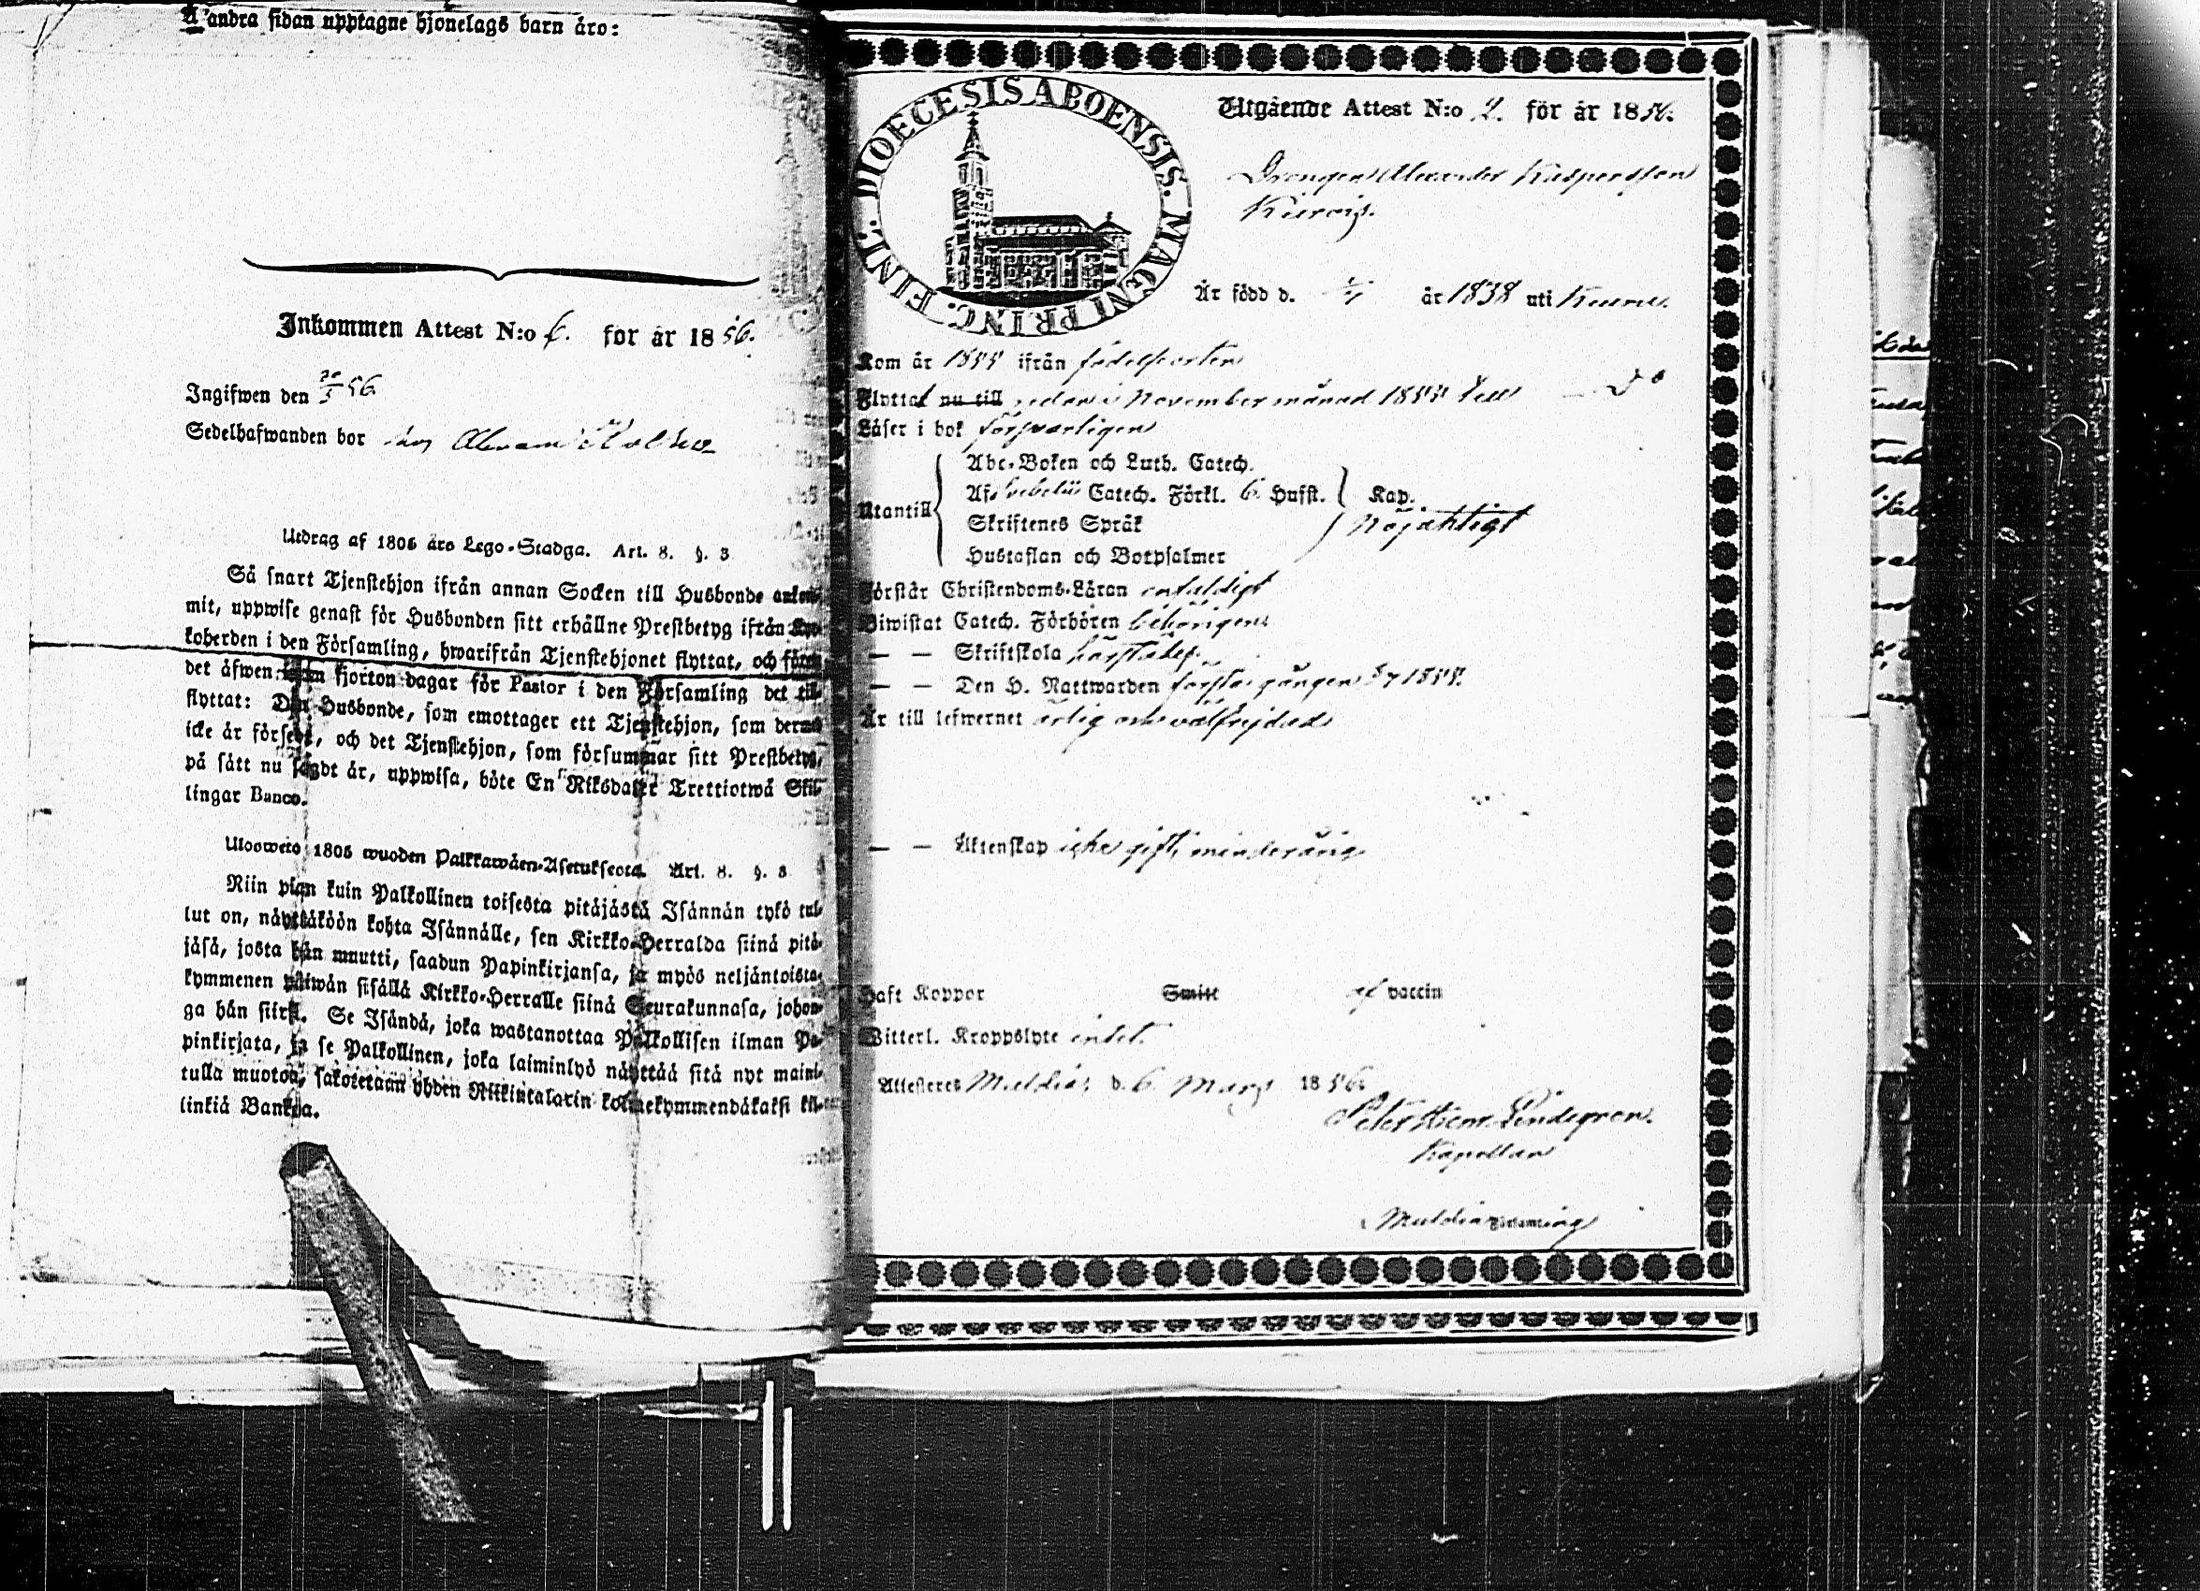 A andra sidan upptagne hjonelags barn äro:
Inkommen Attest N:o 6. for år 1856.
Ingifwen den 20/3 56.
Sedelhafwanden bor
Utdrag af 1805 års Lego-Stadga. Art. 8. §. 3
Så snart Tjenstehjon ifrån annan Socken till Husbonde ankom-
mit, uppwise genast för Husbonden sitt erhållne Prestbetyg ifrån Kyr-
koherden i den Församling, hwarifrån Tjenstehjonet flyttat, och förete
det äfwen inom fjorton dagar för Pastor i den Församling det till-
flyttat: Den Husbonde, som emottager ett Tjenstehjon, som dermed
icke är försedt, och det Tjenstehjon, som försummar sitt Prestbetyg,
på sätt nu sagdt är, uppwisa, böte En Riksdaler Trettiotwå Skil-
lingar Banco.
Uloosweto 1805 wuoden Palkkawäen-Asetuksesta. Art. 8. §. 3
Niin pian kuin Palkollinen toisesta pitäjästä Isännän tykö tul-
lut on, näyttäköön kohta Isännälle, sen Kirkko-Herralda siinä pitä-
jäsä, josta hän muutti, saadun Papinkirjansa, ja myös neljäntoista-
kymmenen päiwän sisällä Kirkko-Herralle siinä Seurakunnasa, johon-
ga hän siirsi. Se Isändä, joka wastanottaa Palkollisen ilman Pa-
pinkirjata, ja se Palkollinen, joka laiminlyö näyttää sitä nyt maini-
tulla muotoa, sakotetaan yhden Riikintalarin kolmekymmendäkaksi kil-
linkiä Bankoa.
DIOECESIS ABOENSIS. MAGNI PRINC. FINL.
Utgående Attest N:o 2. för år 1856.
Drengen Alexander Kaspersson
Är född d. år 1838 uti Keuru.
Kom år 1855 ifrån födelseorten
Flyttat nu till redan i November månad 1855 till D:o
Läser i bok försvarligen
Utantill
Abc-Boken och Luth. Catech.
Af Svebelii Catech. Förkl. 6 Hufst. Kap.
Skriftenes Språk nöjaktigt
Hustaflan och Botpsalmer
Förstår Christendoms-Läran enfaldigt
Biwistat Catech. Förhören behörigen
— — Skriftskola
— — Den H. Nattwarden första gången 1855.
Är till lefwernet ärlig och välfrejdad
— — Äktenskap icke gift, minderårig
Haft Koppor Smitt af vaccin
Witterl. Kroppslyte intet.
Attesteras Muldia, d. 6 Mars 1856.
Peter Herm. Lindegren.
Kapellan
Muldia Församling